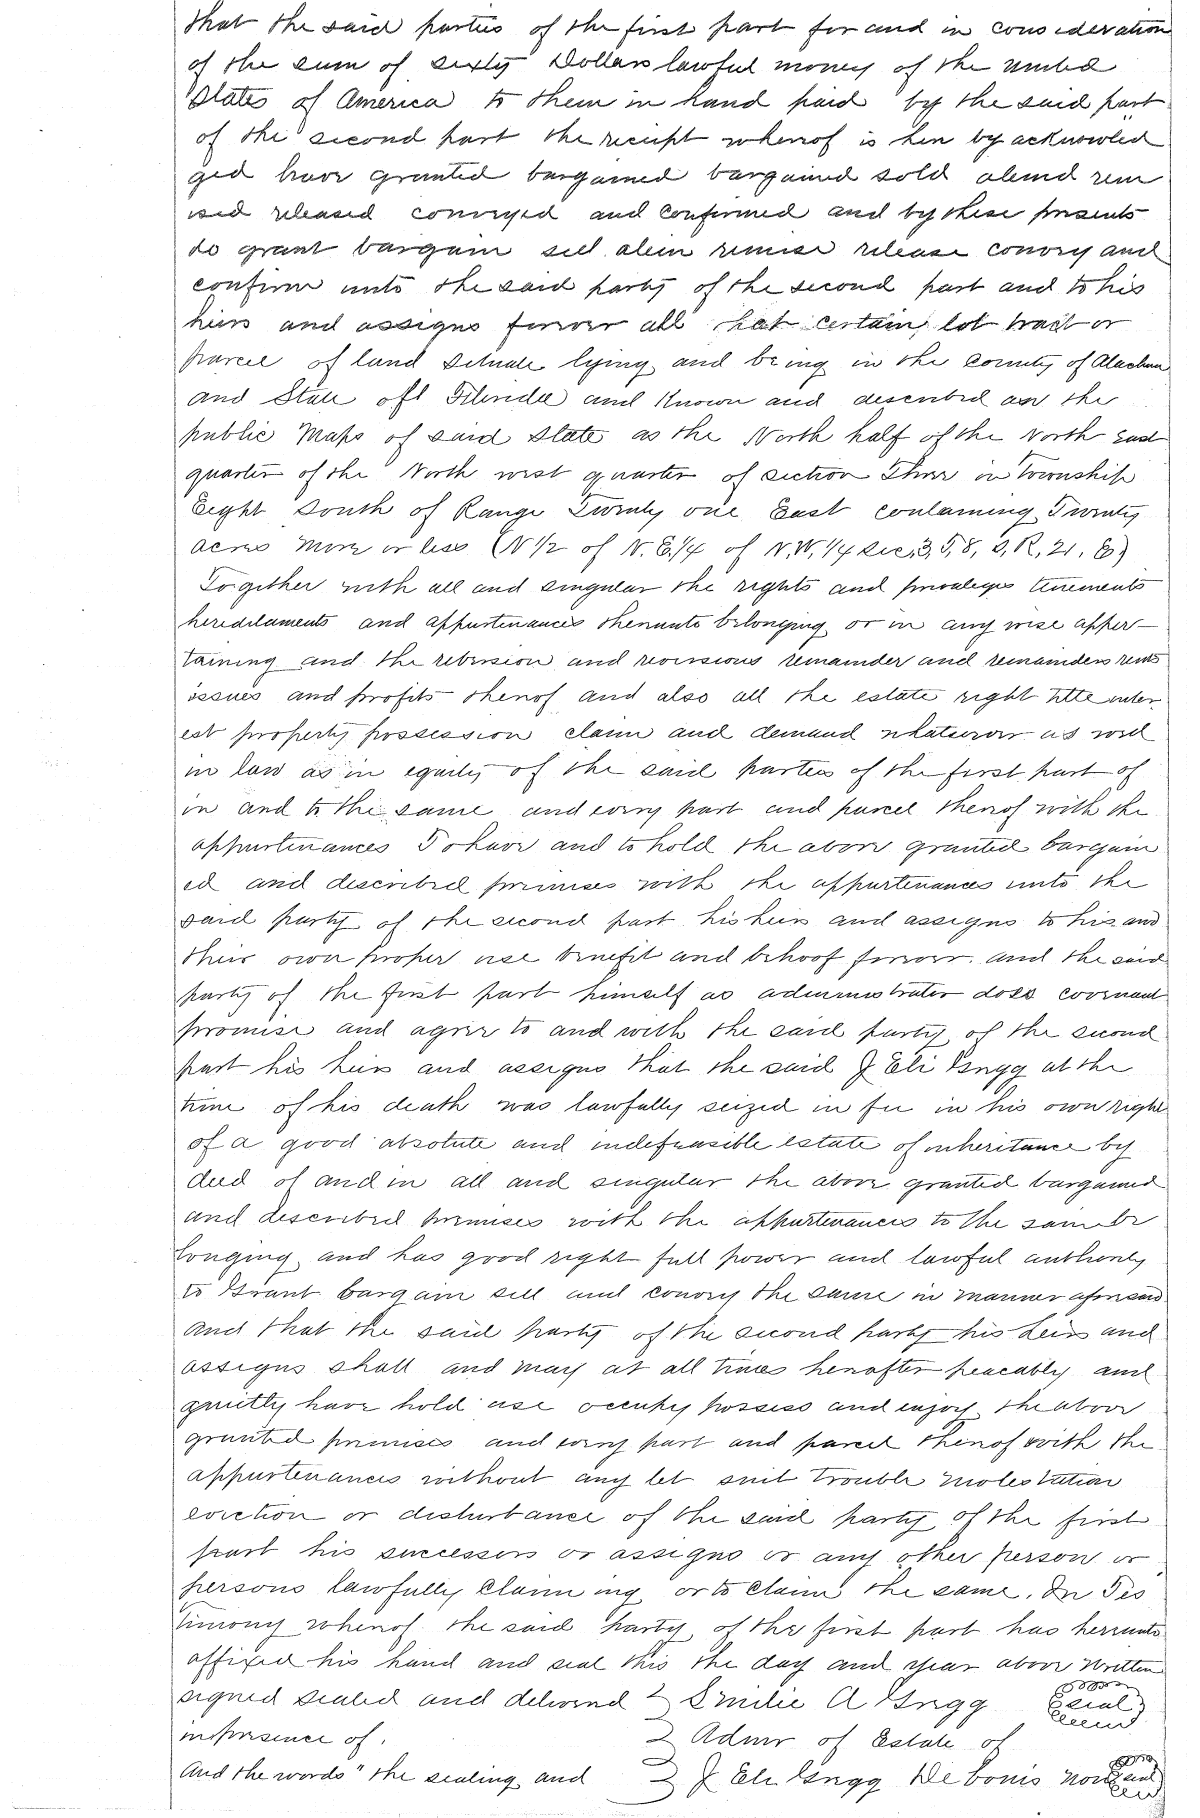 that the said parties of the first part for and in consideration
of the sum of sixty Dollars lawful money of the united
States of America to them in hand paid by the said part
of the second part the receipt whereof is here by acknowled
ged have granted bargained bargained sold aliend rem
ised released conveyed and confirmed and by these presents
do grant bargain sell alien remise release convey and
confirm unto the said party of the second part and to his
heirs and assigns forever all that certain lot tract or
parcel of land situate lying and being in the county of Alachua
and State oft Florida and Known and described on the
public Maps of said State as the North half of the North East
quarter of the North west quarter of section Three in Township
Eight South of Range Twenty one East containing Twenty
acres more or less (N 1/2 of N. E. 1/4 of N. W. 1/4 sec, 3, T, 8, S, R, 21, E)
Together with all and singular the rights and privaleges tenements
hereditaments and appurtenances thereunto belonging or in any wise apper-
taining and the reversion and reversions remainder and remainders rents
issues and profits thereof and also all the estate right title inter
est property possession claim and demand whatsoever as well
in law as in equity of the said parties of the first part of
in and to the same and every part and parcel thereof with the
appurtenances To have and to hold the above granted bargain
ed and described premises with the appurtenances unto the
said party of the second part his heirs and assigns to his and
their own proper use benefit and behoof forever. and the said
party of the first part himself as administrator does covenant
promise and agree to and with the said party of the second
part his heirs and assigns that the said J Eli Grigg at the
time of his death was lawfully seized in fee in his own right
of a good absolute and indefeasible estate of inheritance by
deed of and in all and singular the above granted bargained
and described premises with the appurtenances to the same be
longing and has good right full power and lawful authority
to Grant bargain sell and convey the same in manner aforesaid
And that the said party of the second party his heirs and
assigns shall and may at all times hereafter peacably and
quietly have hold use occupy possess and enjoy the above
granted premises and every part and parcel thereof with the
appurtenances without any let suit trouble molestation
eviction or disturbance of the said party of the first
part his successors or assigns or any other person or
persons lawfully claiming or to claim the same. In Tes
timony whereof the said party of the first part has hereunto
affixed his hand and seal this the day and year above written
signed sealed and delivered Emilie A Grigg seal
in presence of. Admr of Estate of
And the words " the sealing and J Eli Grigg De bonis non seal